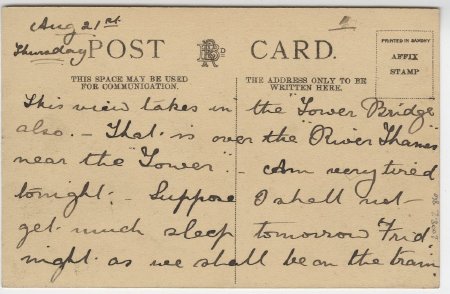 Aug 21st
Thursday
POST CARD.
THIS SPACE MAY BE USED
FOR COMMUNICATION.
THE ADDRESS ONLY TO BE
WRITTEN HERE.
PRINTED IN SAXONY
AFFIX
STAMP
This view takes in the "Tower Bridge"
also. - That is over the "River Thames"
near the "Tower". - Am very tired
tonight. - Suppose I shall not
get much sleep tomorrow Frid.
night as we shall be on the train